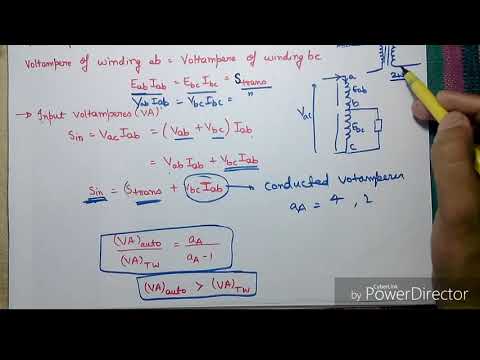 Voltampere of winding ab = Voltampere of winding bc
Eab Iab = Ebc Ibc = Strans
Vab Iab = Vbc Ibc =
→ Input voltamperes (VA)
Sin = Vac Iab = (Vab + Vbc) Iab
= Vab Iab + Vbc Iab
Sin = Strans + Vbc Iab → conducted votamperes
aA = 4 , 2
(VA)auto / (VA)TW = aA / aA - 1
(VA)auto > (VA)TW
a
Eab
b
Vac
Ebc
c
CyberLink
by PowerDirector